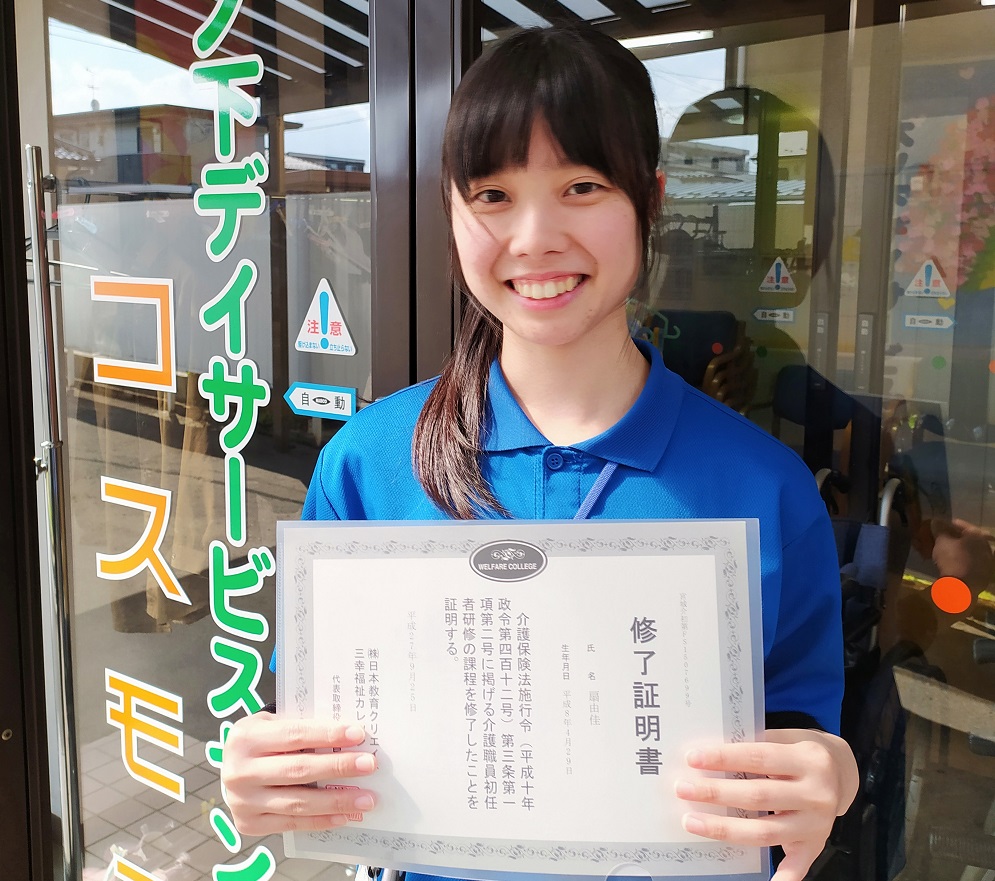 下デイサービスセン
コスモ
注意
駆け込まない 立ち止らない
自動
注意
自動
注意
自動
WELFARE COLLEGE
修了証明書
氏名
生年月日 平成8年4月29日
介護保険法施行令（平成十年
政令第四百十二号）第三条第一
項第二号に掲げる介護職員初任
者研修の課程を修了したことを
証明する。
平成27年9月25日
㈱日本教育クリエイ
三幸福祉カレ
代表取締役